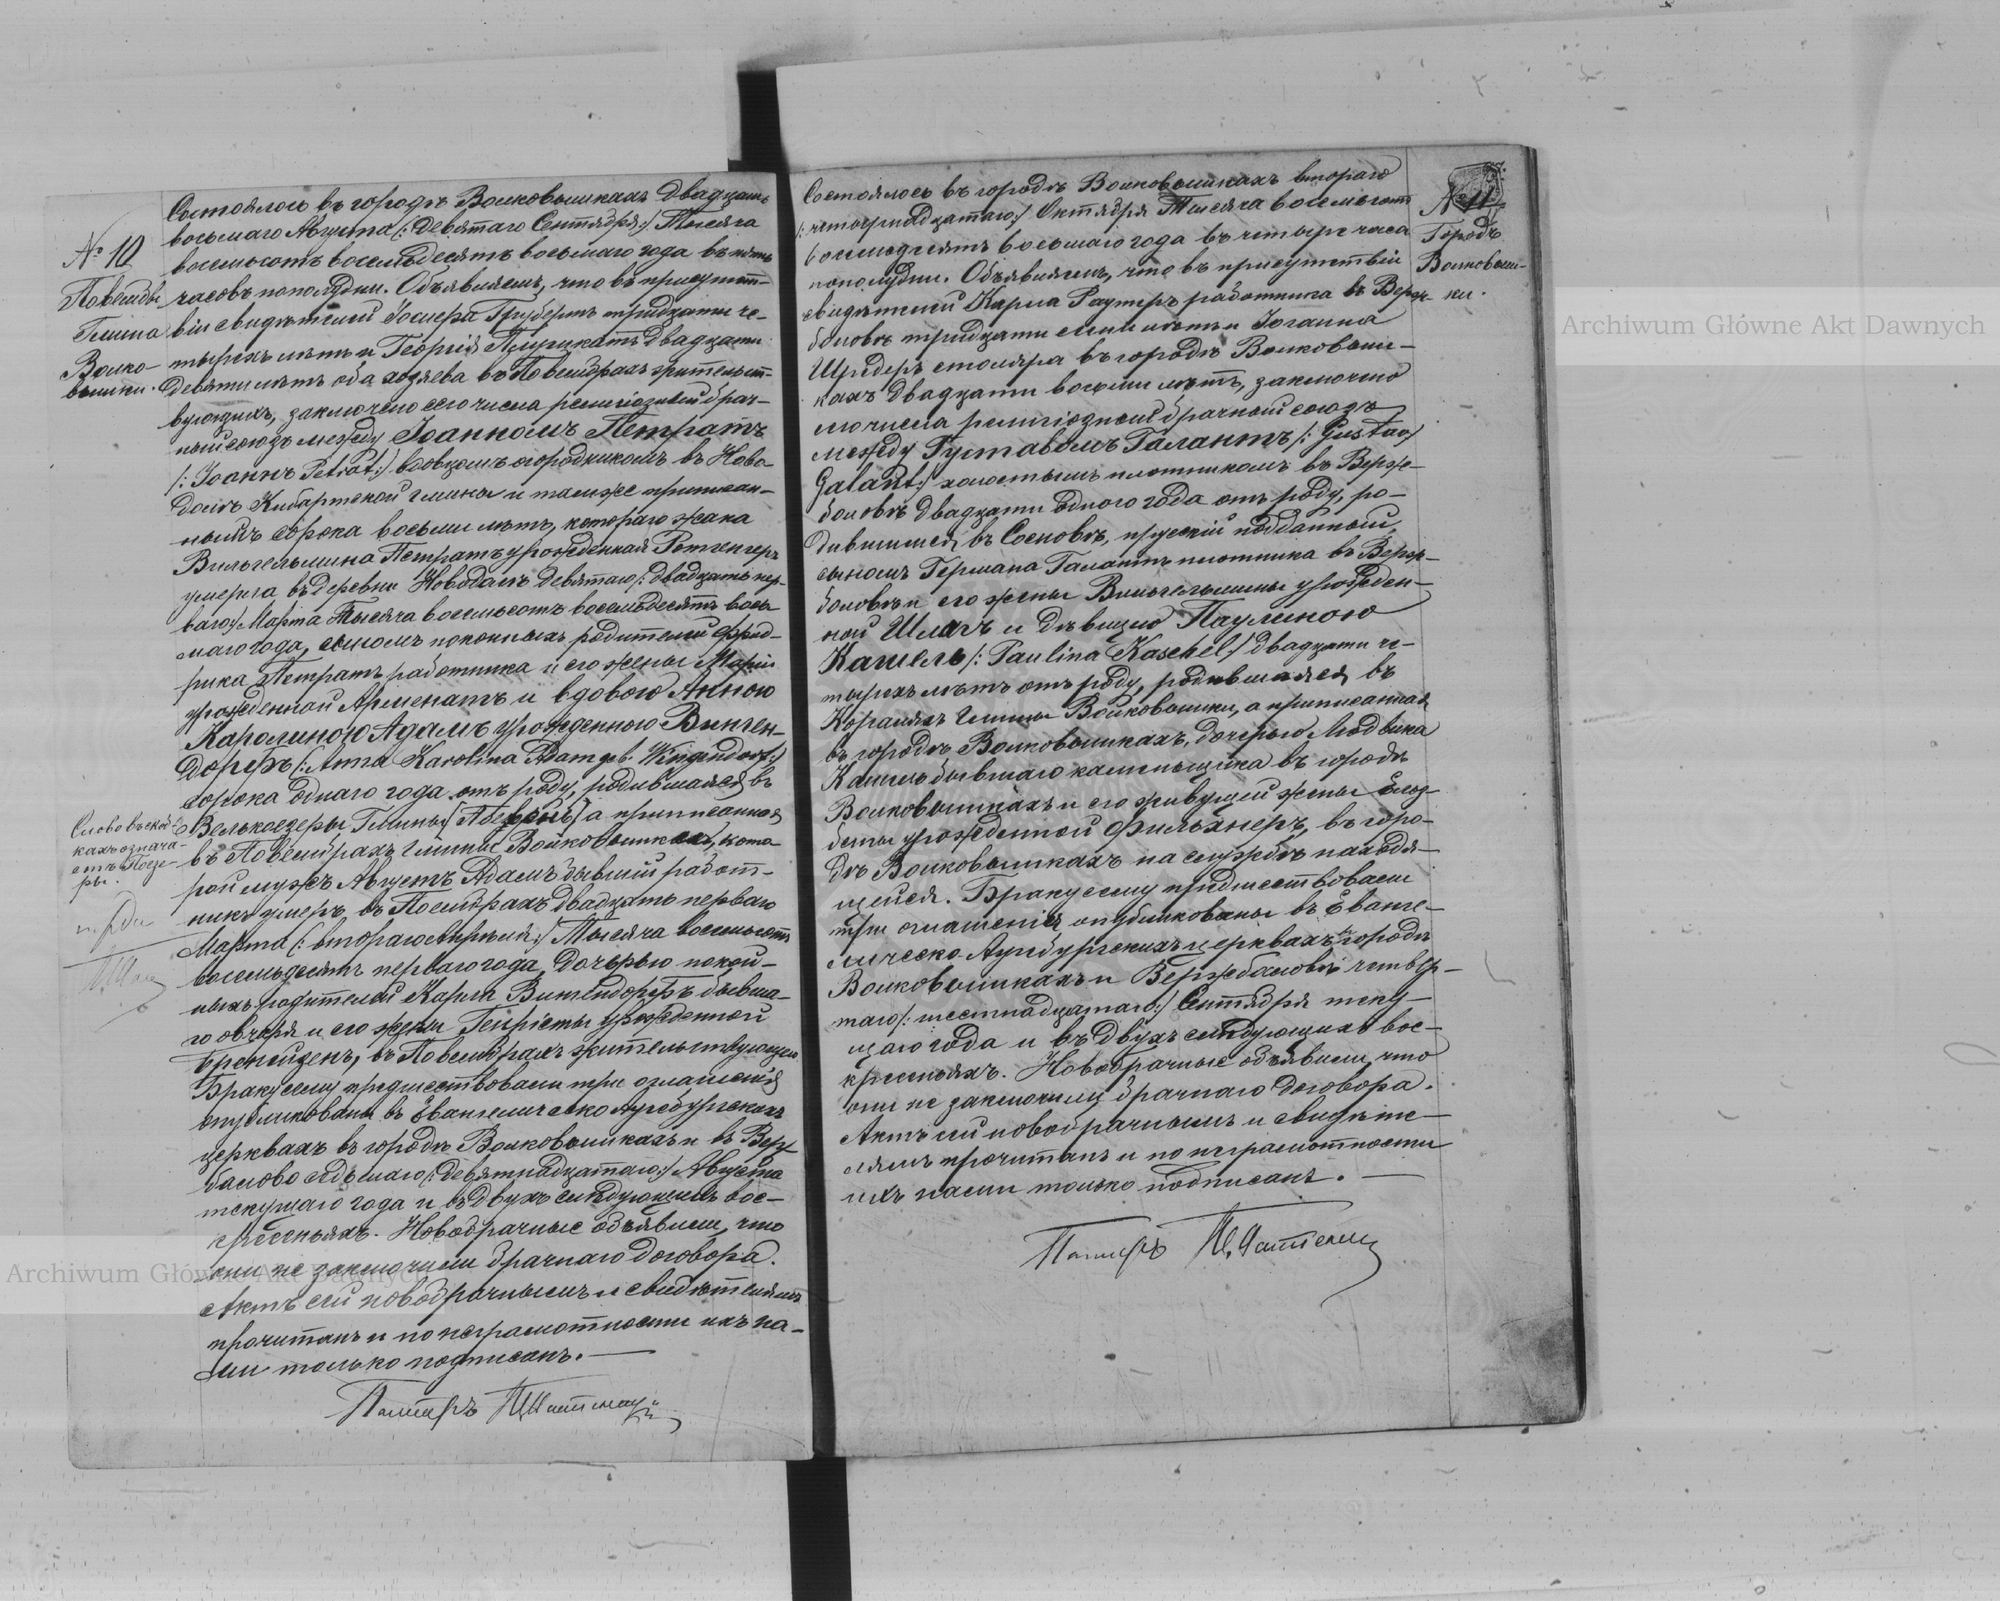 № 10
Повембры
Гмина
Волко-
вышки.
Состоялось въ городѣ Волковышкахъ двадцать
восьмаго Августа (: девятаго Сентября :) Тысяча
восемьсотъ восемьдесятъ восьмаго года въ пять
часовъ пополудни. Объявляемъ, что въ присутст-
віи свидѣтелей Госперa Грубертъ тридцати че-
тырехъ лѣтъ и Георгія двадцати
девяти лѣтъ оба хозяева въ жительст-
вующихъ, заключено сего числа религіозный брач-
ный союзъ между Іоанномъ Петратъ
/: Іоаннъ Petrat :/ вдовцомъ огородникомъ въ Ново-
долѣ Кибартской гмины и тамже приписан-
нымъ сорока восьми лѣтъ, котораго жена
Вильгельмина Петратъ урожденная
умерла въ деревни Новодолѣ девятаго /: двадцать пер-
ваго :/ Марта Тысяча восемьсотъ восемьдесятъ вось-
маго года, сыномъ покойныхъ родителей Фрид-
рика Петратъ работника и его жены Маріи
урожденной Арменатъ и вдовою Анною
Каролиною Адамъ урожденною Винген-
дорфъ (: Anna Karolina Adam geb. Wingendorf :)
сорока одного года отъ роду, родившаяся въ
Велькоезеры Гмины а приписанная
въ гмины Волковышки, кото-
рой мужъ Августъ Адамъ бывшій работ-
никъ умеръ въ двадцать перваго
Марта (: втораго Апрѣля :) Тысяча восемьсотъ
восемьдесятъ перваго года, дочерью покой-
ныхъ родителей Карла Вингендорфъ бывша-
го овчаря и его жены Генріеты урожденной
въ жительствующею
Браку сему предшествовали три оглашенія
опубликованы въ Евангелическо Аугсбургскихъ
церквахъ въ городѣ Волковышкахъ и въ Верж-
болово седьмаго (: девятнадцатаго :) Августа
текущаго года и въ двухъ слѣдующихъ вос-
кресеньяхъ. Новобрачные объявили, что
они не заключили брачнаго договора.
Актъ сей новобрачнымъ и свидѣтелямъ
прочитанъ и по неграмотности ихъ на-
ми только подписанъ. —
Пасторъ
Слово въ скоб-
кахъ означа-
етъ Поезе-
ры.
№ 11
Городъ
Волковыш-
ки.
Состоялось въ городѣ Волковышкахъ втораго
/: четырнадцатаго :/ Октября Тысяча восемьсотъ
восемьдесятъ восьмаго года въ четыре часа
пополудни. Объявляемъ, что въ присутствіи
свидѣтелей Карла Раутеръ работника въ Верж-
боловѣ тридцати семи лѣтъ и Іоганна
Шредеръ столяра въ городѣ Волковыш-
кахъ двадцати восьми лѣтъ, заключено
сего числа религіозный брачный союзъ
между Густавомъ Галантъ /: Gustav
Galant :/ холостымъ плотникомъ въ Верж-
боловѣ двадцати одного года отъ роду, ро-
дившимся въ Сосновѣ, прускій подданный,
сыномъ Германа Галантъ плотника въ Верж-
боловѣ и его жены Вильгельмины урожден-
ной Шлагъ и дѣвицею Паулиною
Кашель /: Paulina Kaschel :/ двадцати че-
тырехъ лѣтъ отъ роду, родившаяся въ
гмины Волковышки, а приписанная
въ городѣ Волковышкахъ, дочерью Людвика
Кашель бывшаго каменьщика въ городѣ
Волковышкахъ и его живущей жены Елза-
беты урожденной Фильхнеръ, въ горо-
дѣ Волковышкахъ на службѣ находя-
щейся. Браку сему предшествовали
три оглашенія опубликованы въ Еванге-
лическо Аугсбургскихъ церквахъ въ городѣ
Волковышкахъ и Вержболовѣ четвер-
таго /: шестнадцатаго :/ Сентября теку-
щаго года и въ двухъ слѣдующихъ вос-
кресеньяхъ. Новобрачные объявили, что
они не заключили брачнаго договора.
Актъ сей новобрачнымъ и свидѣте-
лямъ прочитанъ и по неграмотности
ихъ нами только подписанъ. —
Пасторъ
Archiwum Główne Akt Dawnych
Archiwum Główne Akt Dawnych